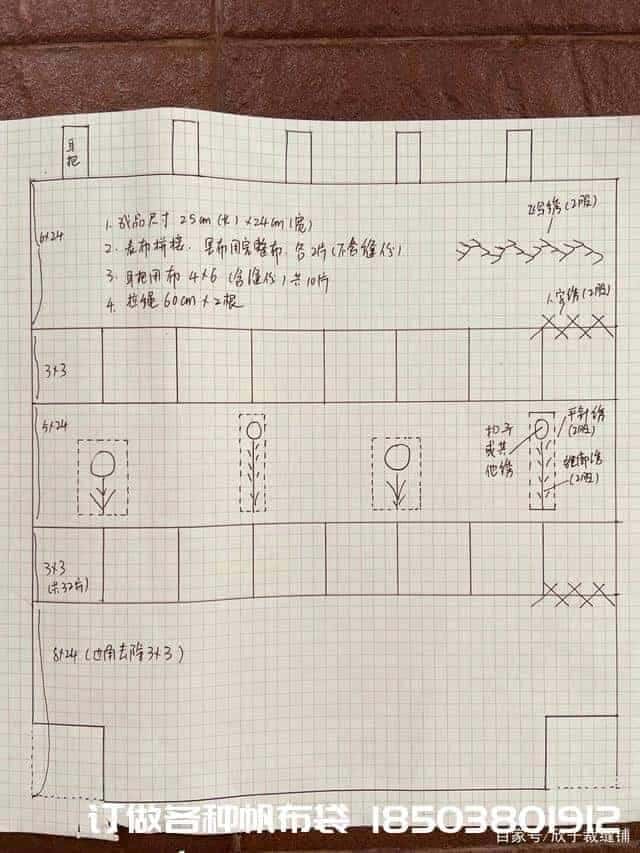 耳把
6×24
1. 成品尺寸 25cm(长)×24cm(宽)
2. 表布拼接, 里布用完整布, 各2片(不含缝份)
3. 耳把用布 4×6 (含缝份) 共10片
4. 拉绳 60cm×2根
飞鸟绣(2股)
人字绣(2股)
3×3
5×24
扣子
或其
他绣
平针绣
(2股)
(2股)
3×3
(共32片)
8×24 (边角去除3×3)
订做各种帆布袋 18503801912
百家号/欣于裁缝铺